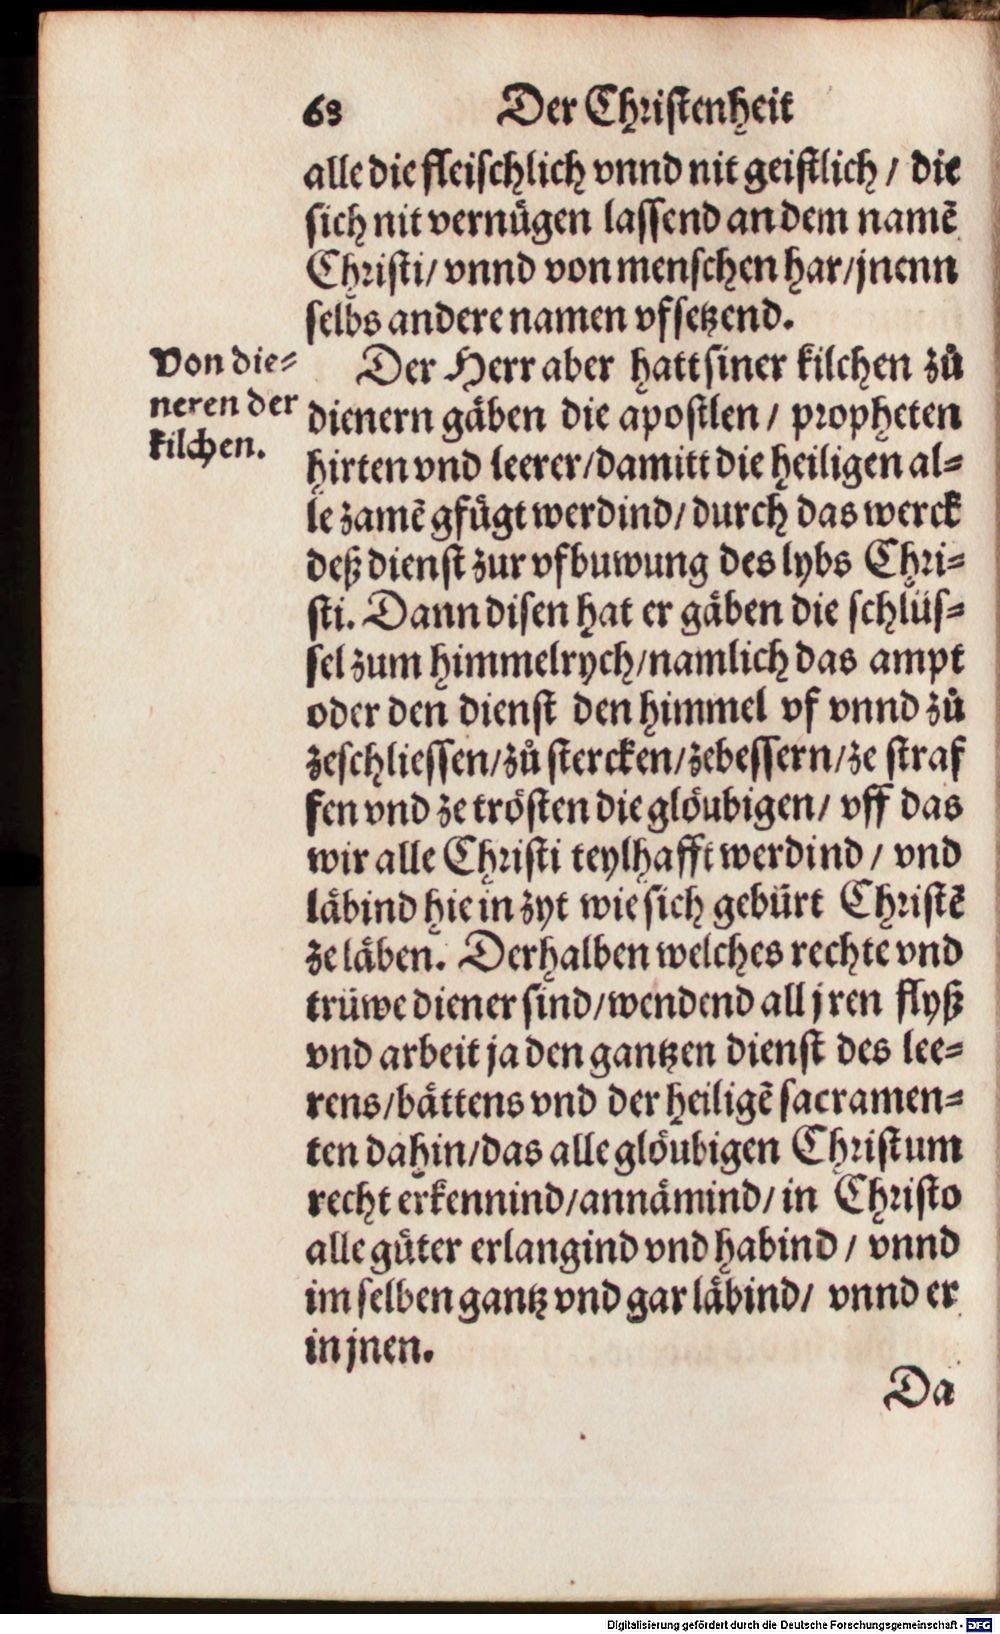 68 Der Christenheit
alle die fleischlich vnnd nit geistlich / die
sich nit vernuͤgen lassend an dem namẽ
Christi / vnnd von menschen har / jnenn
selbs andere namen vfsetzend.
Von die⸗
neren der
kilchen.
Der Herr aber hatt siner kilchen zuͦ
dienern gaͤben die apostlen / propheten
hirten vnd leerer / damitt die heiligen al⸗
le zamẽ gfuͤgt werdind / durch das werck
deß dienst zur vfbuwung des lybs Chri⸗
sti. Dann disen hat er gaͤben die schlüs⸗
sel zum himmelrych / namlich das ampt
oder den dienst den himmel vf vnnd zuͦ
zeschliessen / zuͦ stercken / zebessern / ze straf
fen vnd ze troͤsten die gloͤubigen / vff das
wir alle Christi teylhafft werdind / vnd
laͤbind hie in zyt wie sich gebürt Christẽ
ze laͤben. Derhalben welches rechte vnd
trüwe diener sind / wendend all jren flyß
vnd arbeit ja den gantzen dienst des lee⸗
rens / baͤttens vnd der heiligẽ sacramen⸗
ten dahin / das alle gloͤubigen Christum
recht erkennind / annaͤmind / in Christo
alle guͤter erlangind vnd habind / vnnd
im selben gantz vnd gar laͤbind / vnnd er
in jnen.
Da
Digitalisierung gefördert durch die Deutsche Forschungsgemeinschaft - DFG